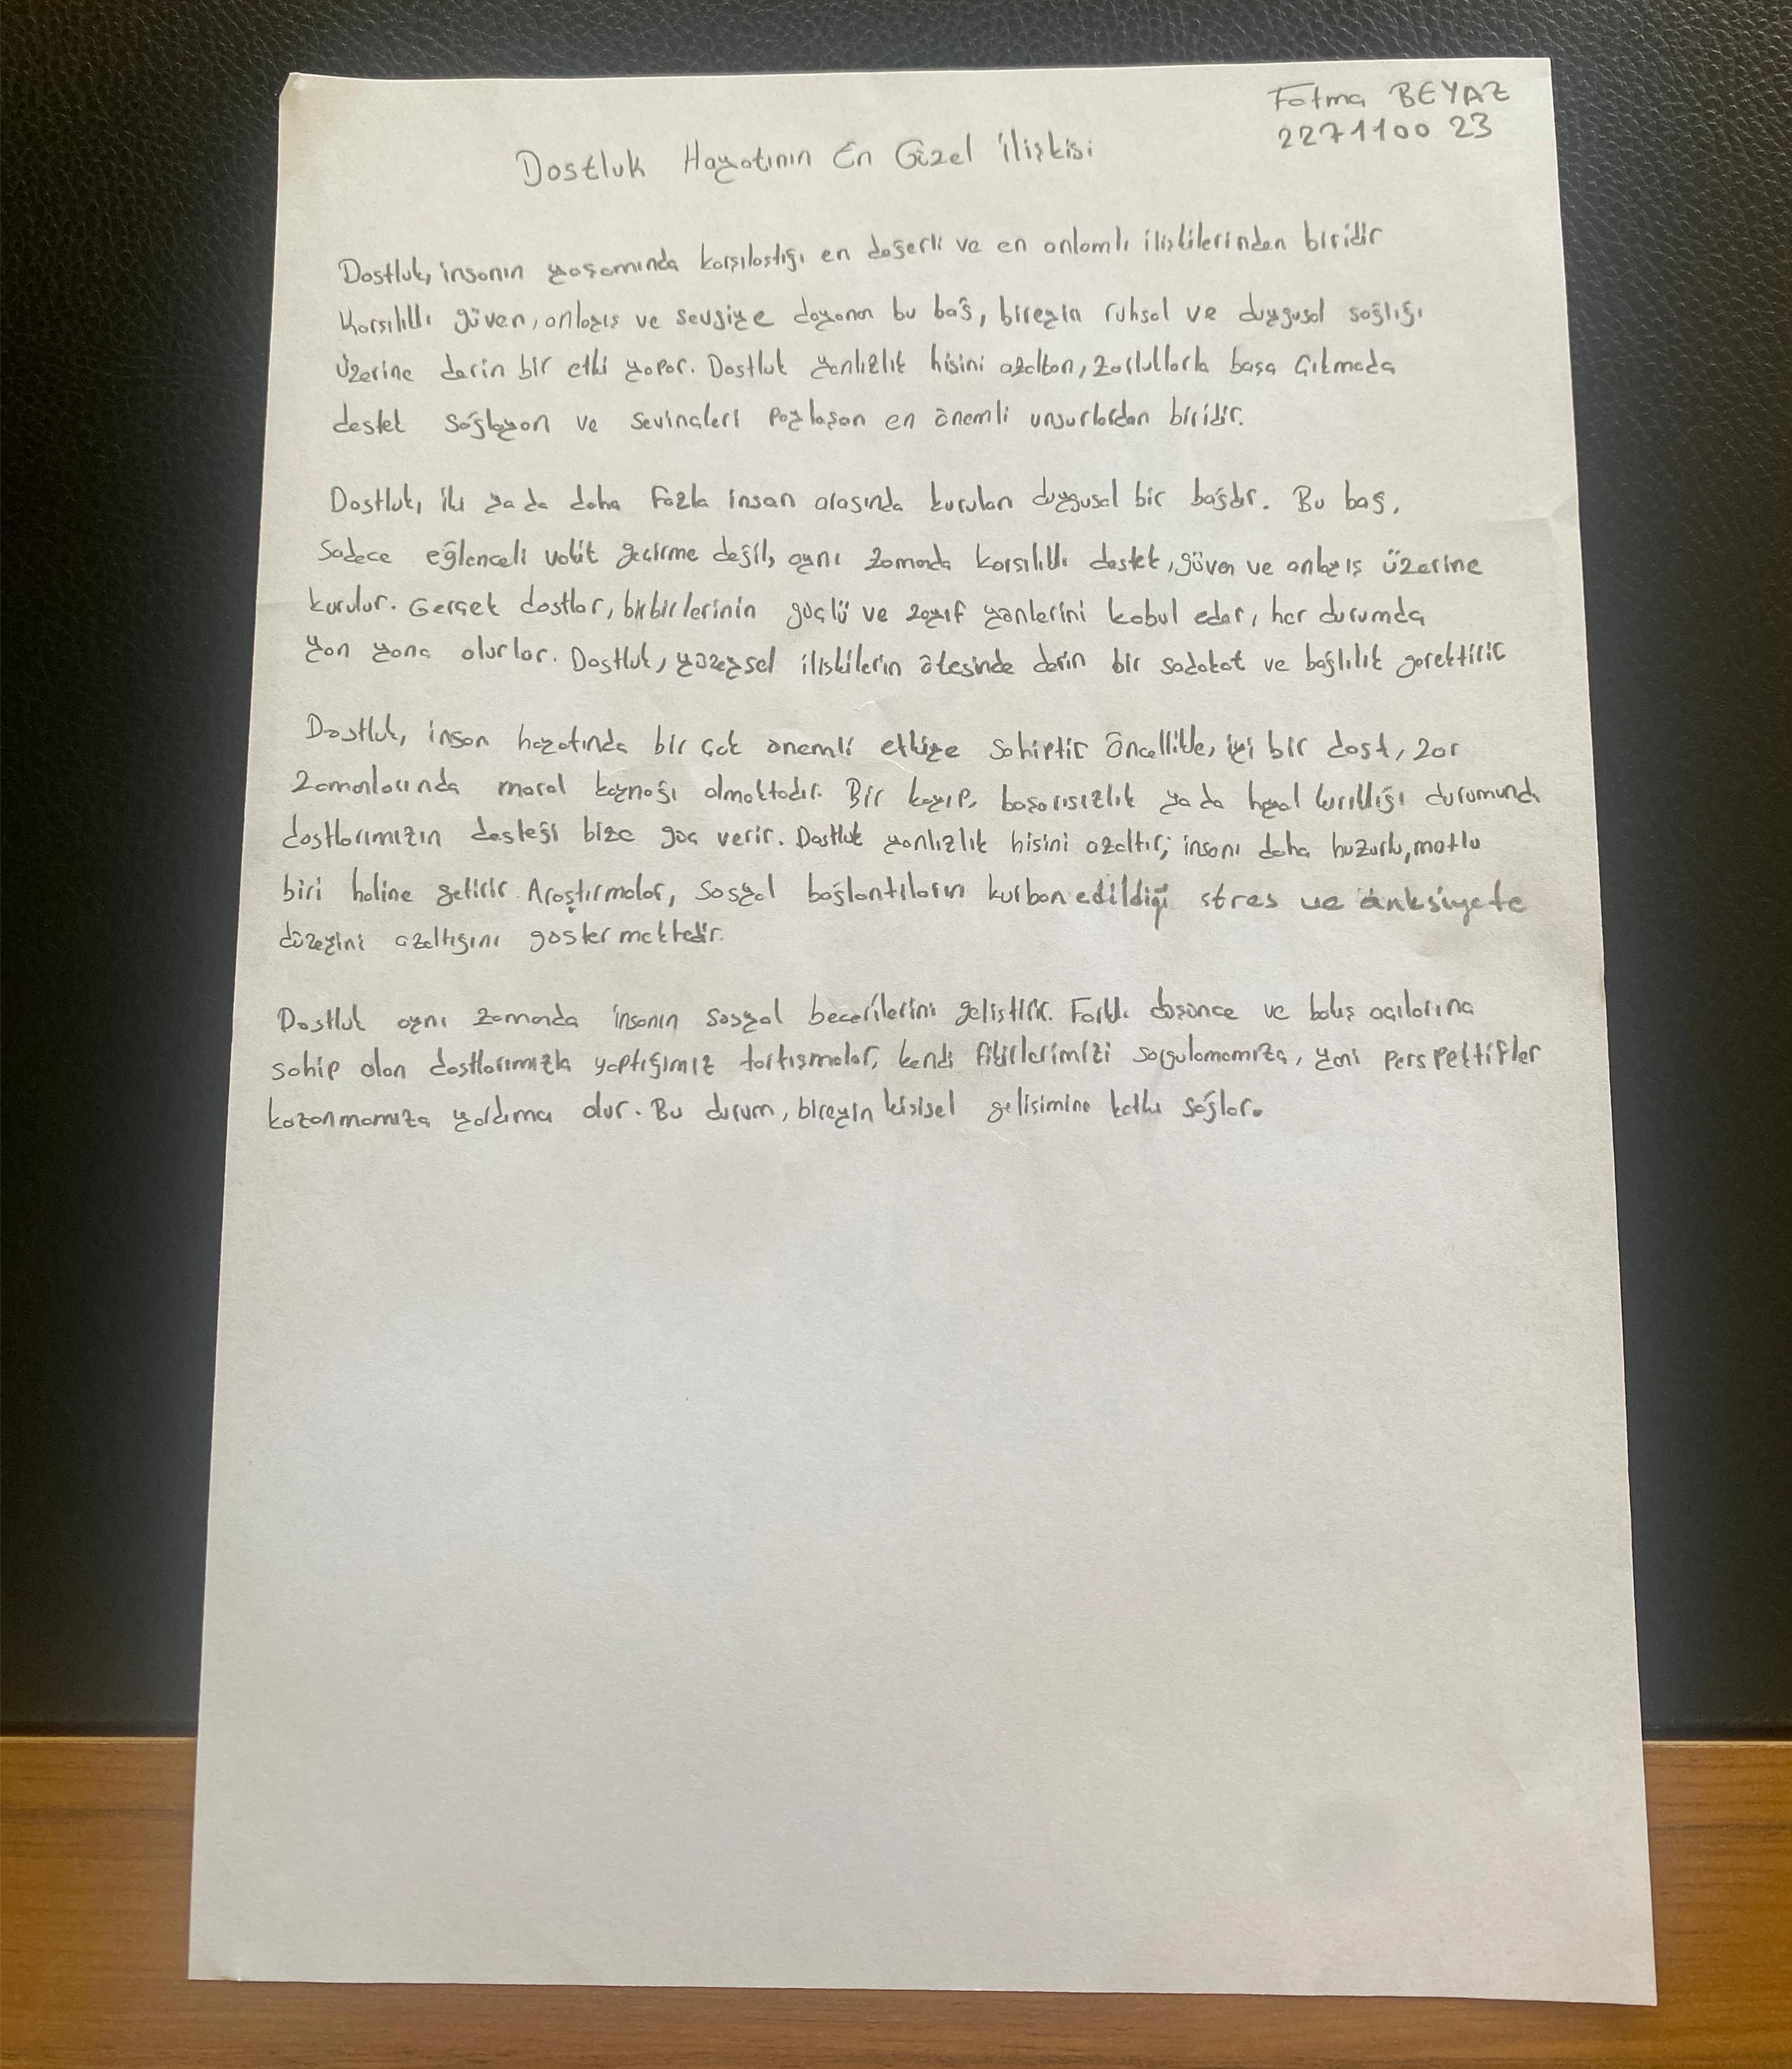 Fatma BEYAZ
227110023
Dostluk Hayatının En Güzel İlişkisi
Dostluk, insanın yaşamında karşılaştığı en değerli ve en anlamlı ilişkilerinden biridir
Karşılıklı güven, anlayış ve sevgiye dayanan bu bağ, bireyin ruhsal ve duygusal sağlığı
üzerine derin bir etki yapar. Dostluk yanlızlık hisini azaltan, zorluklarla başa çıkmada
destek sağlayan ve sevinçleri paylaşan en önemli unsurlardan biridir.
Dostluk, iki ya da daha fazla insan arasında kurulan duygusal bir bağdır. Bu bağ,
Sadece eğlenceli vakit geçirme değil, aynı zamanda karşılıklı destek, güven ve anlayış üzerine
kurulur. Gerçek dostlar, birbirlerinin güçlü ve zayıf yanlerini kabul eder, her durumda
yan yana olurlar. Dostluk, yüzeysel ilişkilerin ötesinde derin bir sadakat ve bağlılık gerektirir
Dostluk, insan hayatında bir çok önemli etkiye sahiptir Öncellikle, iyi bir dost, zor
zamanlarında moral kaynağı olmaktadır. Bir kayıp, başarısızlık ya da hayal kırıklığı durumunda
dostlarımızın desteği bize güç verir. Dostluk yanlızlık hisini azaltır; insanı daha huzurlu, mutlu
biri haline getirir Araştırmalar, sosyal bağlantıların kurban edildiği stres ve anksiyete
düzeyini azaltığını göstermektedir.
Dostluk aynı zamanda insanın sosyal becerilerini geliştirir. Farklı düşünce ve bakış açılarına
sahip olan dostlarımızla yaptığımız tartışmalar, kendi fikirlerimizi sorgulamamıza, yeni perspektifler
kazanmamıza yardımcı olur. Bu durum, bireyin kişisel gelişimine katkı sağlar.